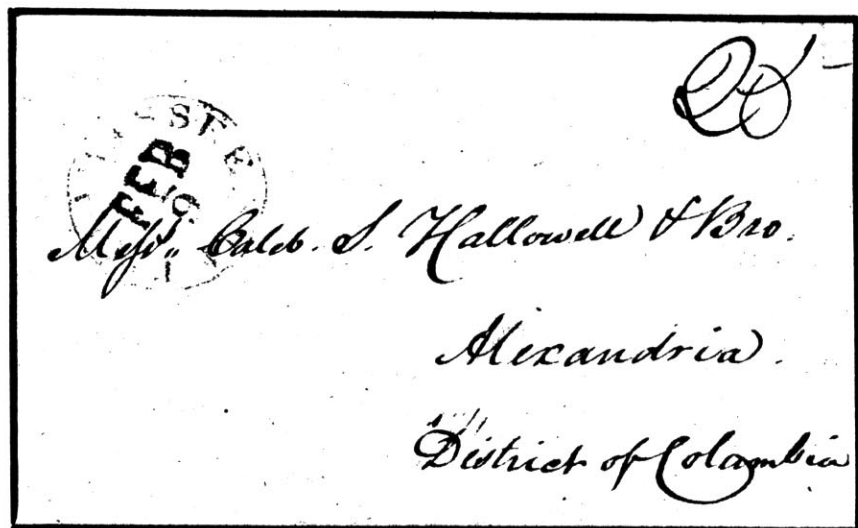 25
FEB
9
Messrs. Caleb. S. Hallowell & Bro.
Alexandria.
District of Columbia